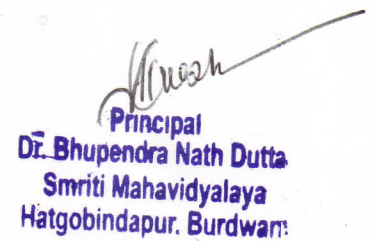 Principal
Dr. Bhupendra Nath Dutta
Smriti Mahavidyalaya
Hatgobindapur. Burdwan